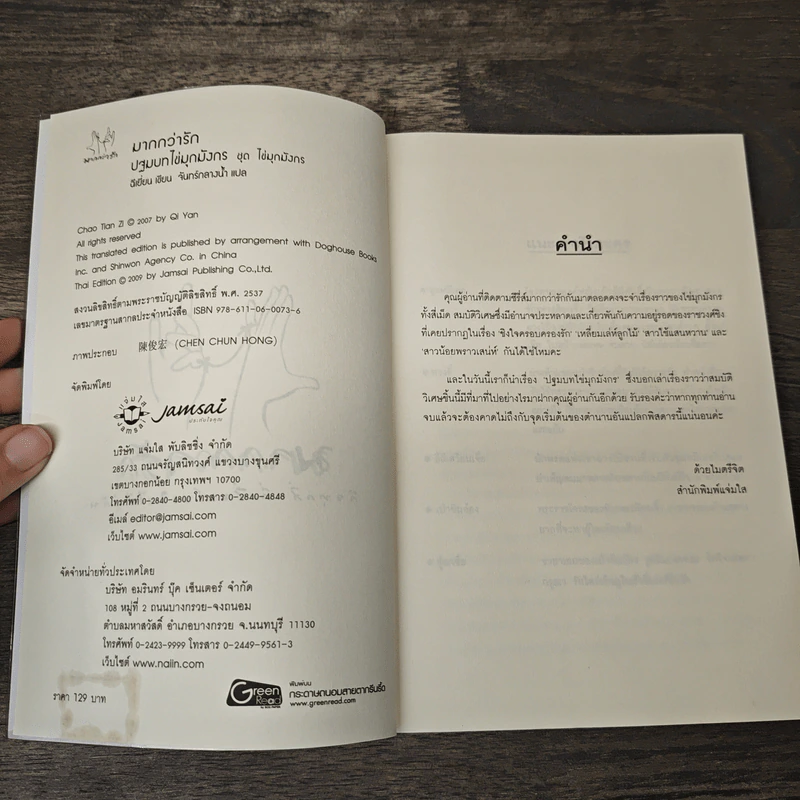 มากกว่ารัก
มากกว่ารัก
ปฐมบทไข่มุกมังกร ชุด ไข่มุกมังกร
ฉีเยี่ยน เขียน จันทร์กลางน้ำ แปล
Chao Tian Zi © 2007 by Qi Yan
All rights reserved
This translated edition is published by arrangement with Doghouse Books
Inc. and Shinwon Agency Co. in China
Thai Edition © 2009 by Jamsai Publishing Co.,Ltd.
สงวนลิขสิทธิ์ตามพระราชบัญญัติลิขสิทธิ์ พ.ศ. 2537
เลขมาตรฐานสากลประจำหนังสือ ISBN 978-611-06-0073-6
ภาพประกอบ 陳俊宏 (CHEN CHUN HONG)
จัดพิมพ์โดย
แจ่มใส
Jamsai
Jamsai
บริษัท แจ่มใส พับลิชชิ่ง จำกัด
285/33 ถนนจรัญสนิทวงศ์ แขวงบางขุนศรี
เขตบางกอกน้อย กรุงเทพฯ 10700
โทรศัพท์ 0-2840-4800 โทรสาร 0-2840-4848
อีเมล์ editor@jamsai.com
เว็บไซต์ www.jamsai.com
จัดจำหน่ายทั่วประเทศโดย
บริษัท อมรินทร์ บุ๊ค เซ็นเตอร์ จำกัด
108 หมู่ที่ 2 ถนนบางกรวย-จงถนอม
ตำบลมหาสวัสดิ์ อำเภอบางกรวย จ.นนทบุรี 11130
โทรศัพท์ 0-2423-9999 โทรสาร 0-2449-9561-3
เว็บไซต์ www.naiin.com
ราคา 129 บาท
Green
Read
พิมพ์บน
กระดาษถนอมสายตากรีนรี้ด
www.greenread.com
คำนำ
คุณผู้อ่านที่ติดตามซีรี่ส์มากกว่ารักกันมาตลอดคงจะจำเรื่องราวของไข่มุกมังกร
ทั้งสี่เม็ด สมบัติวิเศษซึ่งมีอำนาจประหลาดและเกี่ยวพันกับความอยู่รอดของราชวงศ์ชิง
ที่เคยปรากฏในเรื่อง 'ชิงใจครอบครองรัก' 'เหลี่ยมเล่ห์ลูกไม้' 'สาวใช้แสนหวาน' และ
'สาวน้อยพราวเสน่ห์' กันได้ใช่ไหมคะ
และในวันนี้เราก็นำเรื่อง 'ปฐมบทไข่มุกมังกร' ซึ่งบอกเล่าเรื่องราวว่าสมบัติ
วิเศษชิ้นนี้มีที่มาที่ไปอย่างไรมาฝากคุณผู้อ่านกันอีกด้วย รับรองค่ะว่าหากทุกท่านอ่าน
จบแล้วจะต้องคาดไม่ถึงกับจุดเริ่มต้นของตำนานอันแปลกพิสดารนี้แน่นอนค่ะ
ด้วยไมตรีจิต
สำนักพิมพ์แจ่มใส